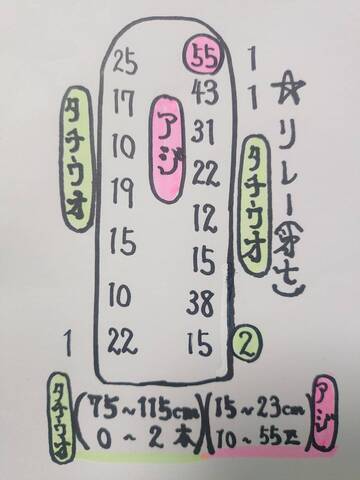 ☆リレー(㐧七)
25 55 1
17 43 1
10 31
19 22
15 12
10 15
1 22 38
15 2
タチウオ
アジ
タチウオ
タチウオ
75~115cm
0~2本
15~23cm
10~55匹
アジ